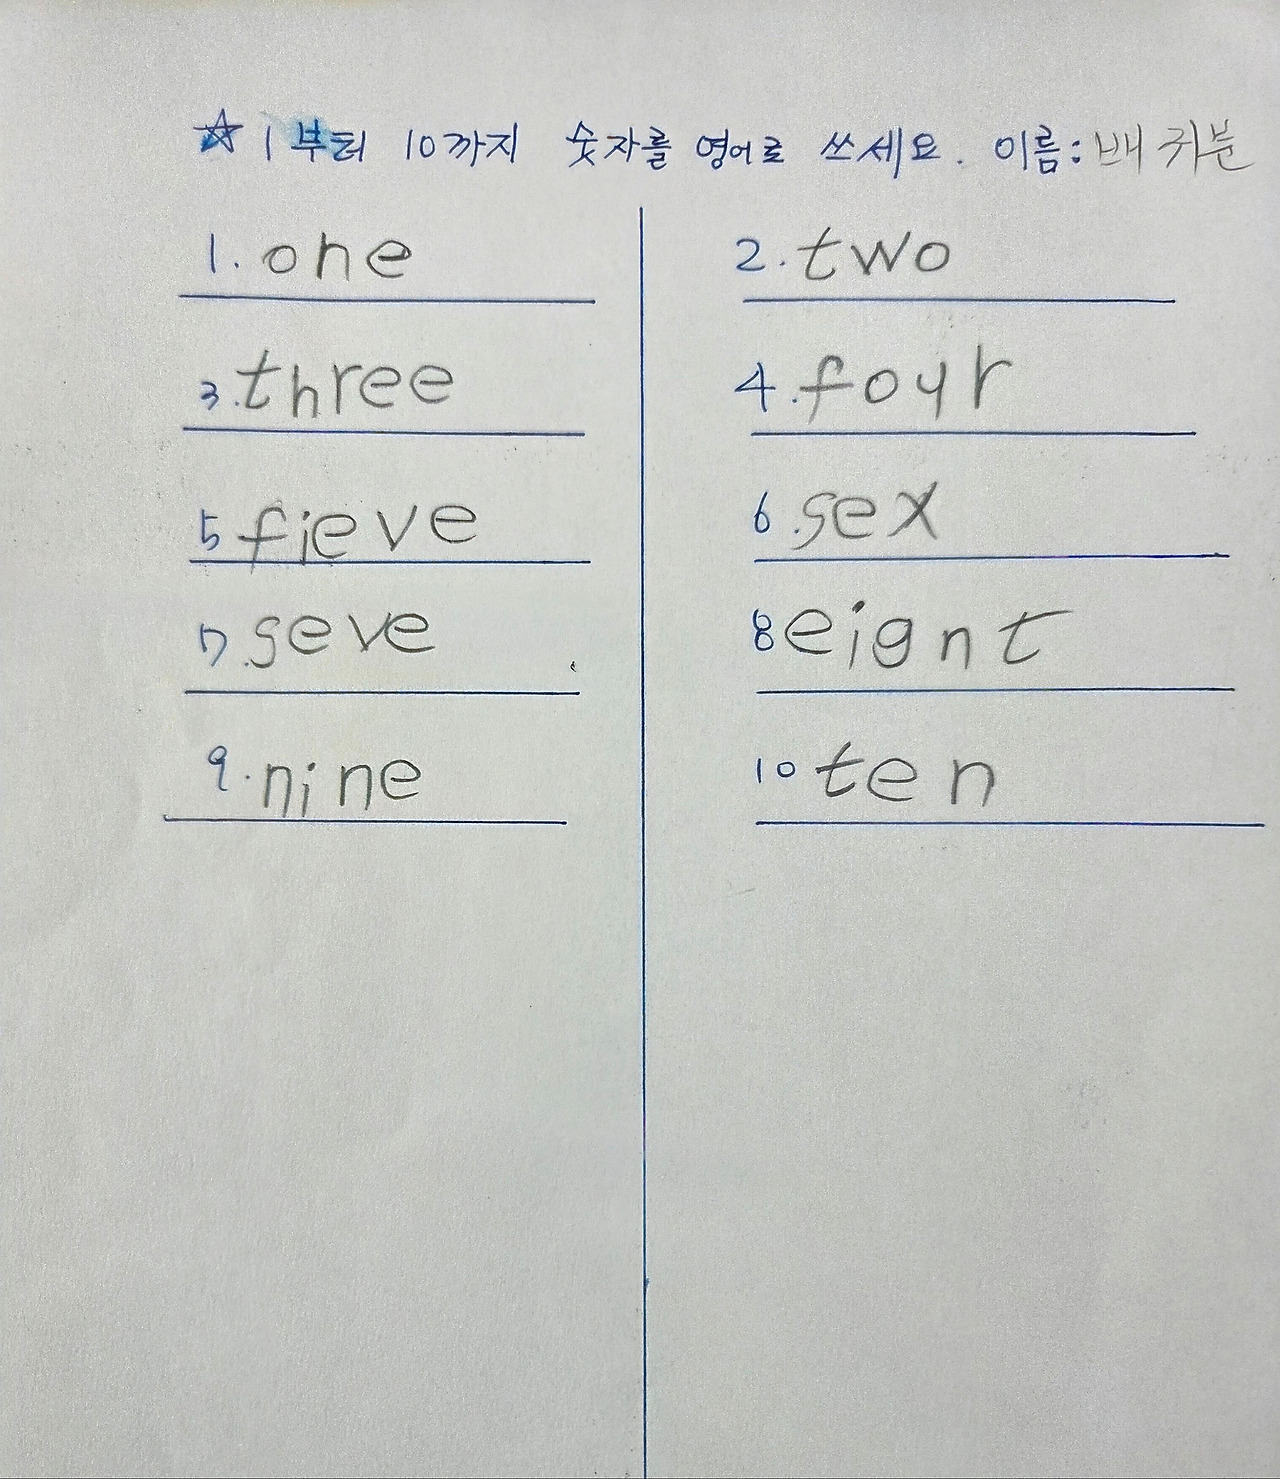 ☆ 1부터 10까지 숫자를 영어로 쓰세요. 이름: 배귀분
1. one
2. two
3. three
4. four
5 fieve
6. sex
7. seve
8 eignt
9. nine
10 ten